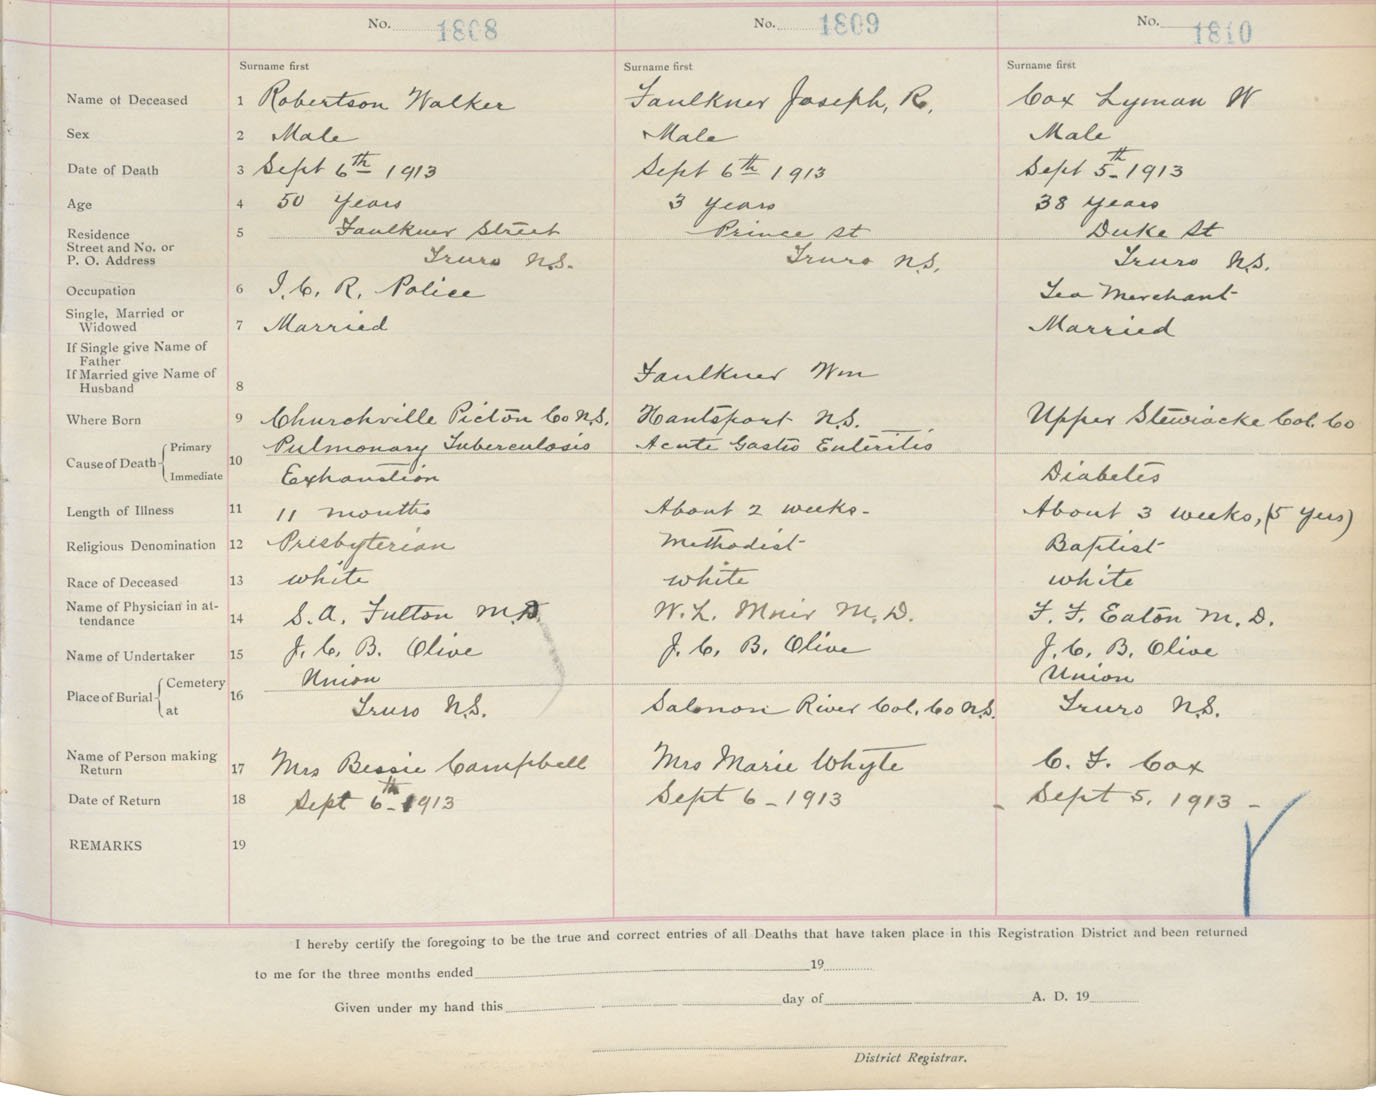 No. 1808 No. 1809 No. 1810
Surname first Surname first Surname first
Name of Deceased 1 Robertson Walker Faulkner Joseph, R, Cox Lyman W
Sex 2 Male Male Male
Date of Death 3 Sept 6th 1913 Sept 6th 1913 Sept 5th 1913
Age 4 50 years 3 years 38 years
Residence 5 Faulkner Street Prince St Duke St
Street and No. or
P. O. Address Truro N.S. Truro N.S. Truro N.S.
Occupation 6 I. C. R. Police Tea Merchant
Single, Married or
Widowed 7 Married Married
If Single give Name of
Father
If Married give Name of Faulkner Wm
Husband 8
Where Born 9 Churchville Picton Co N.S. Hantsport N.S. Upper Stewiacke Col. Co
Cause of Death 10 Primary Pulmonary Tuberculosis Acute Gastro Enteritis
Immediate Exhaustion Diabetes
Length of Illness 11 11 months About 2 weeks - About 3 weeks, (5 yrs)
Religious Denomination 12 Presbyterian Methodist Baptist
Race of Deceased 13 white white white
Name of Physician in at-
tendance 14 S. A. Fulton M.D. W. L. Muir M. D. F. F. Eaton M. D.
Name of Undertaker 15 J. C. B. Olive J. C. B. Olive J. C. B. Olive
Place of Burial 16 Cemetery Union Union
at Truro N.S. Salmon River Col. Co N.S. Truro N.S.
Name of Person making
Return 17 Mrs Bessie Campbell Mrs Marie Whyte C. F. Cox
Date of Return 18 Sept 6th 1913 Sept 6 - 1913 - Sept 5, 1913 -
REMARKS 19
I hereby certify the foregoing to be the true and correct entries of all Deaths that have taken place in this Registration District and been returned
to me for the three months ended 19
Given under my hand this day of A. D. 19
District Registrar.